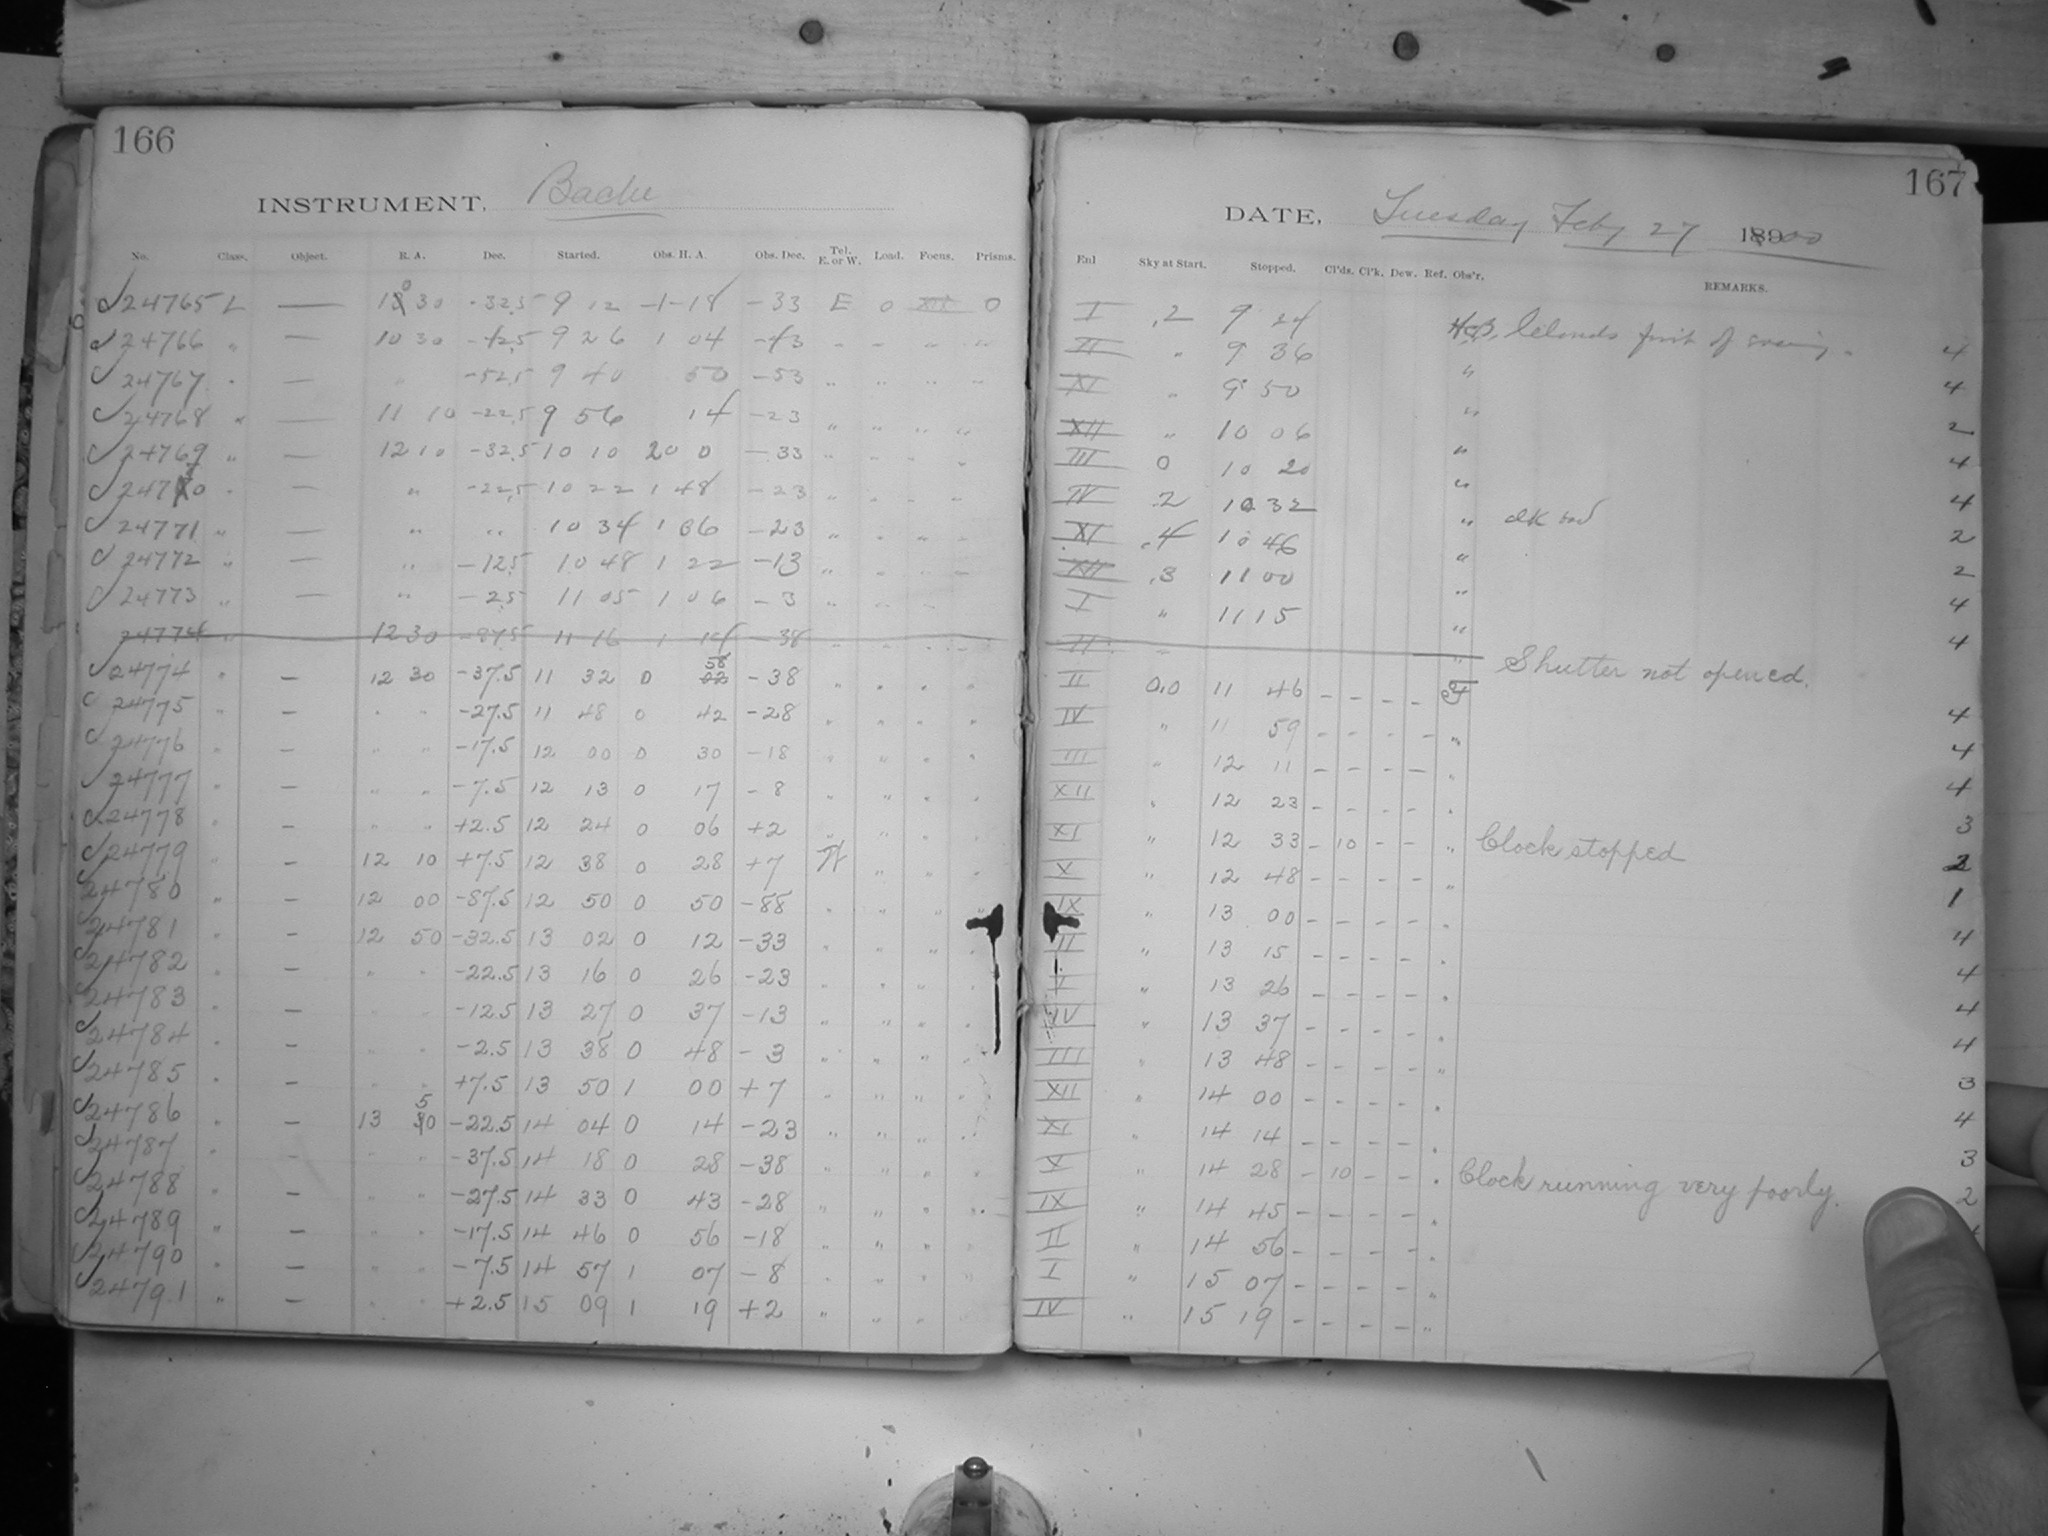 166
INSTRUMENT. Bache
No. Class. Object. R. A. Dec. Started. Obs. H. A. Obs. Dec. Tel. E. or W. Load. Focus. Prisms.
24765 L — 10 30 -32.5 9 12 -1-18 -33 E 0 XII 0
24766 " — 10 30 -42.5 9 26 1 04 -43 " " " "
24767 " — " -52.5 9 40 50 -53 " " " "
24768 " — 11 10 -22.5 9 56 14 -23 " " " "
24769 " — 12 10 -32.5 10 10 2 00 -33 " " " "
24770 " — " -22.5 10 22 1 48 -23 " " " "
24771 " — " " 10 34 1 36 -23 " " " "
24772 " — " -12.5 10 48 1 22 -13 " " " "
24773 " — " -2.5 11 05 1 06 -3 " " "
24774 " 12 30 -37.5 11 16 1 14 -38
24774 " — 12 30 -37.5 11 32 0 58 -38 " " " "
24775 " — " " -27.5 11 48 0 42 -28 " " " "
24776 " — " " -17.5 12 00 0 30 -18 " " " "
24777 " — " " -7.5 12 13 0 17 -8 " " " "
24778 " — " " +2.5 12 24 0 06 +2 " " " "
24779 " — 12 10 +7.5 12 38 0 28 +7 W " " "
24780 " — 12 00 -87.5 12 50 0 50 -88 " " " "
24781 " — 12 50 -32.5 13 02 0 12 -33 " " " "
24782 " — " " -22.5 13 16 0 26 -23 " " " "
24783 " — " " -12.5 13 27 0 37 -13 " " " "
24784 " — " " -2.5 13 38 0 48 -3 " " " "
24785 " — " " +7.5 13 50 1 00 +7 " " " "
24786 " — 13 50 -22.5 14 04 0 14 -23 " " " "
24787 " — " " -37.5 14 18 0 28 -38 " " " "
24788 " — " " -27.5 14 33 0 43 -28 " " " "
24789 " — " " -17.5 14 46 0 56 -18 " " " "
24790 " — " " -7.5 14 57 1 07 -8 " " " "
24791 " — " " +2.5 15 09 1 19 +2 " " " "
167
DATE, Tuesday Feby 27 1900
Enl Sky at Start. Stopped. Cl'ds. Cl'k. Dew. Ref. Obs'r. REMARKS.
I .2 9 24 Clouds first of evening. 4
III " 9 36 " 4
XI " 9 50 " 2
XII " 10 06 " 4
III 0 10 20 " 4
IV .2 10 32 " 2
XI .4 10 46 " 2
XII .3 11 00 " 4
I " 11 15 " 4
II " Shutter not opened.
II 0.0 11 46 - - - - 4
IV " 11 59 - - - - " 4
III " 12 11 - - - - " 4
XII " 12 23 - - - - " 3
XI " 12 33 - 10 - - " Clock stopped 2
X " 12 48 - - - - " 1
IX " 13 00 - - - - " 4
II " 13 15 - - - - " 4
I " 13 26 - - - - " 4
IV " 13 37 - - - - " 4
III " 13 48 - - - - " 3
XII " 14 00 - - - - " 4
XI " 14 14 - - - - " 3
X " 14 28 - 10 - - " Clock running very poorly. 2
IX " 14 45 - - - - "
II " 14 56 - - - - "
I " 15 07 - - - - "
IV " 15 19 - - - - "